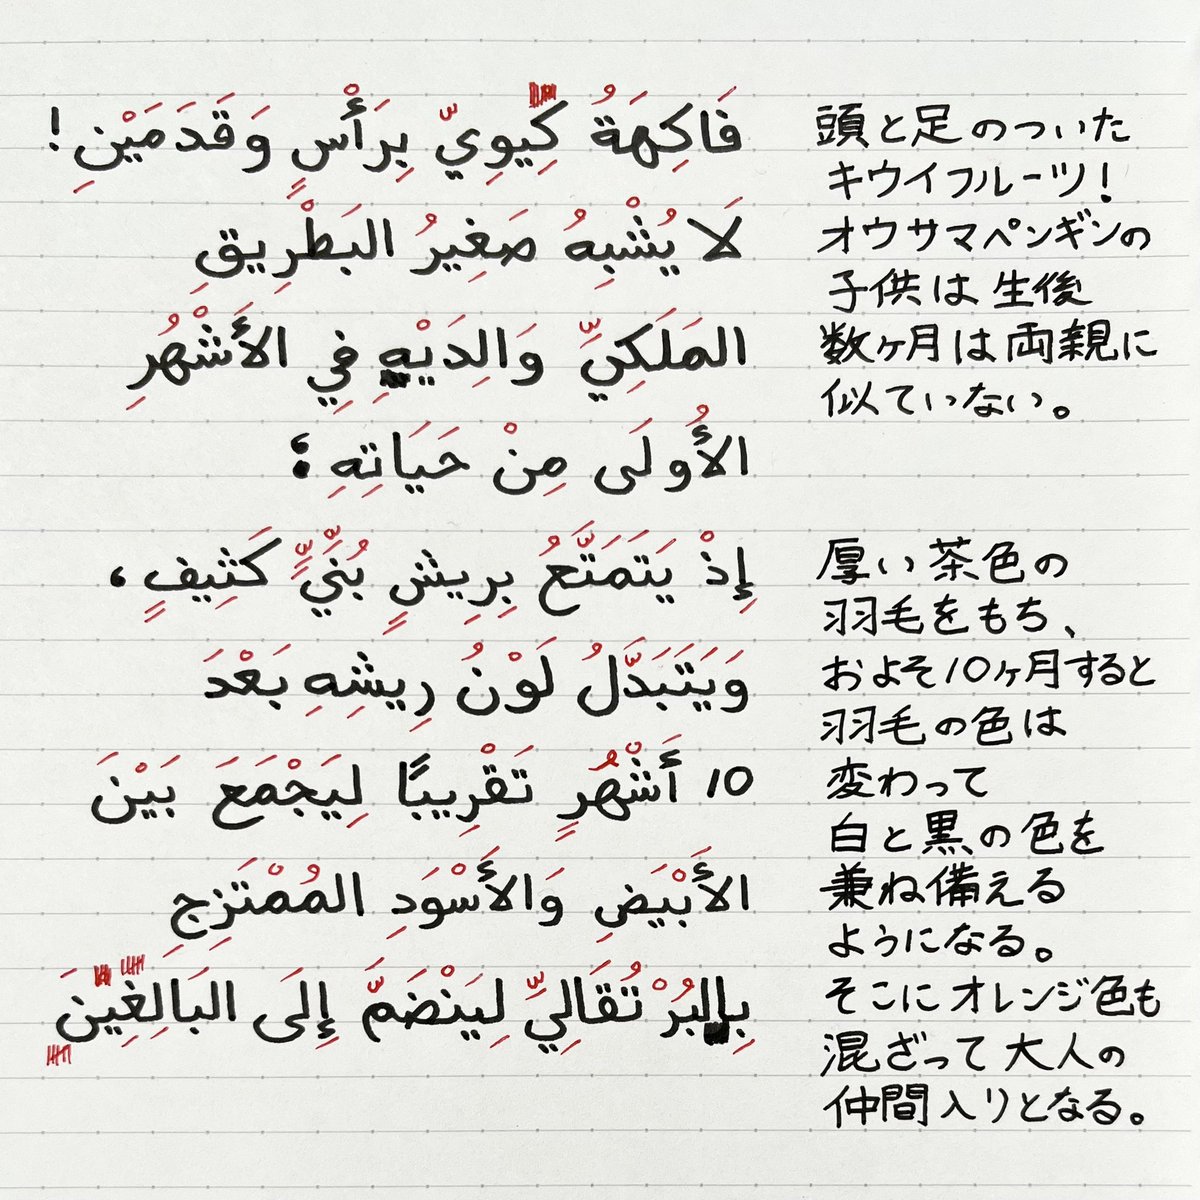 فَاكِهَةُ كِيوِيّ بِرَأْسٍ وَقَدَمَيْنِ!
لَا يُشْبِهُ صَغِيرُ البَطْرِيقِ
المَلَكِيِّ وَالِدَيْهِ فِي الأَشْهُرِ
الأُولَى مِنْ حَيَاتِهِ؛
إِذْ يَتَمَتَّعُ بِرِيشٍ بُنِّيٍّ كَثِيفٍ،
وَيَتَبَدَّلُ لَوْنُ رِيشِهِ بَعْدَ
10 أَشْهُرٍ تَقْرِيبًا لِيَجْمَعَ بَيْنَ
الأَبْيَضِ وَالأَسْوَدِ المُمْتَزِجِ
بِالبُرْتُقَالِيِّ لِيَنْضَمَّ إِلَى البَالِغِينَ
頭と足のついた
キウイフルーツ!
オウサマペンギンの
子供は生後
数ヶ月は両親に
似ていない。
厚い茶色の
羽毛をもち、
およそ10ヶ月すると
羽毛の色は
変わって
白と黒の色を
兼ね備える
ようになる。
そこにオレンジ色も
混ざって大人の
仲間入りとなる。